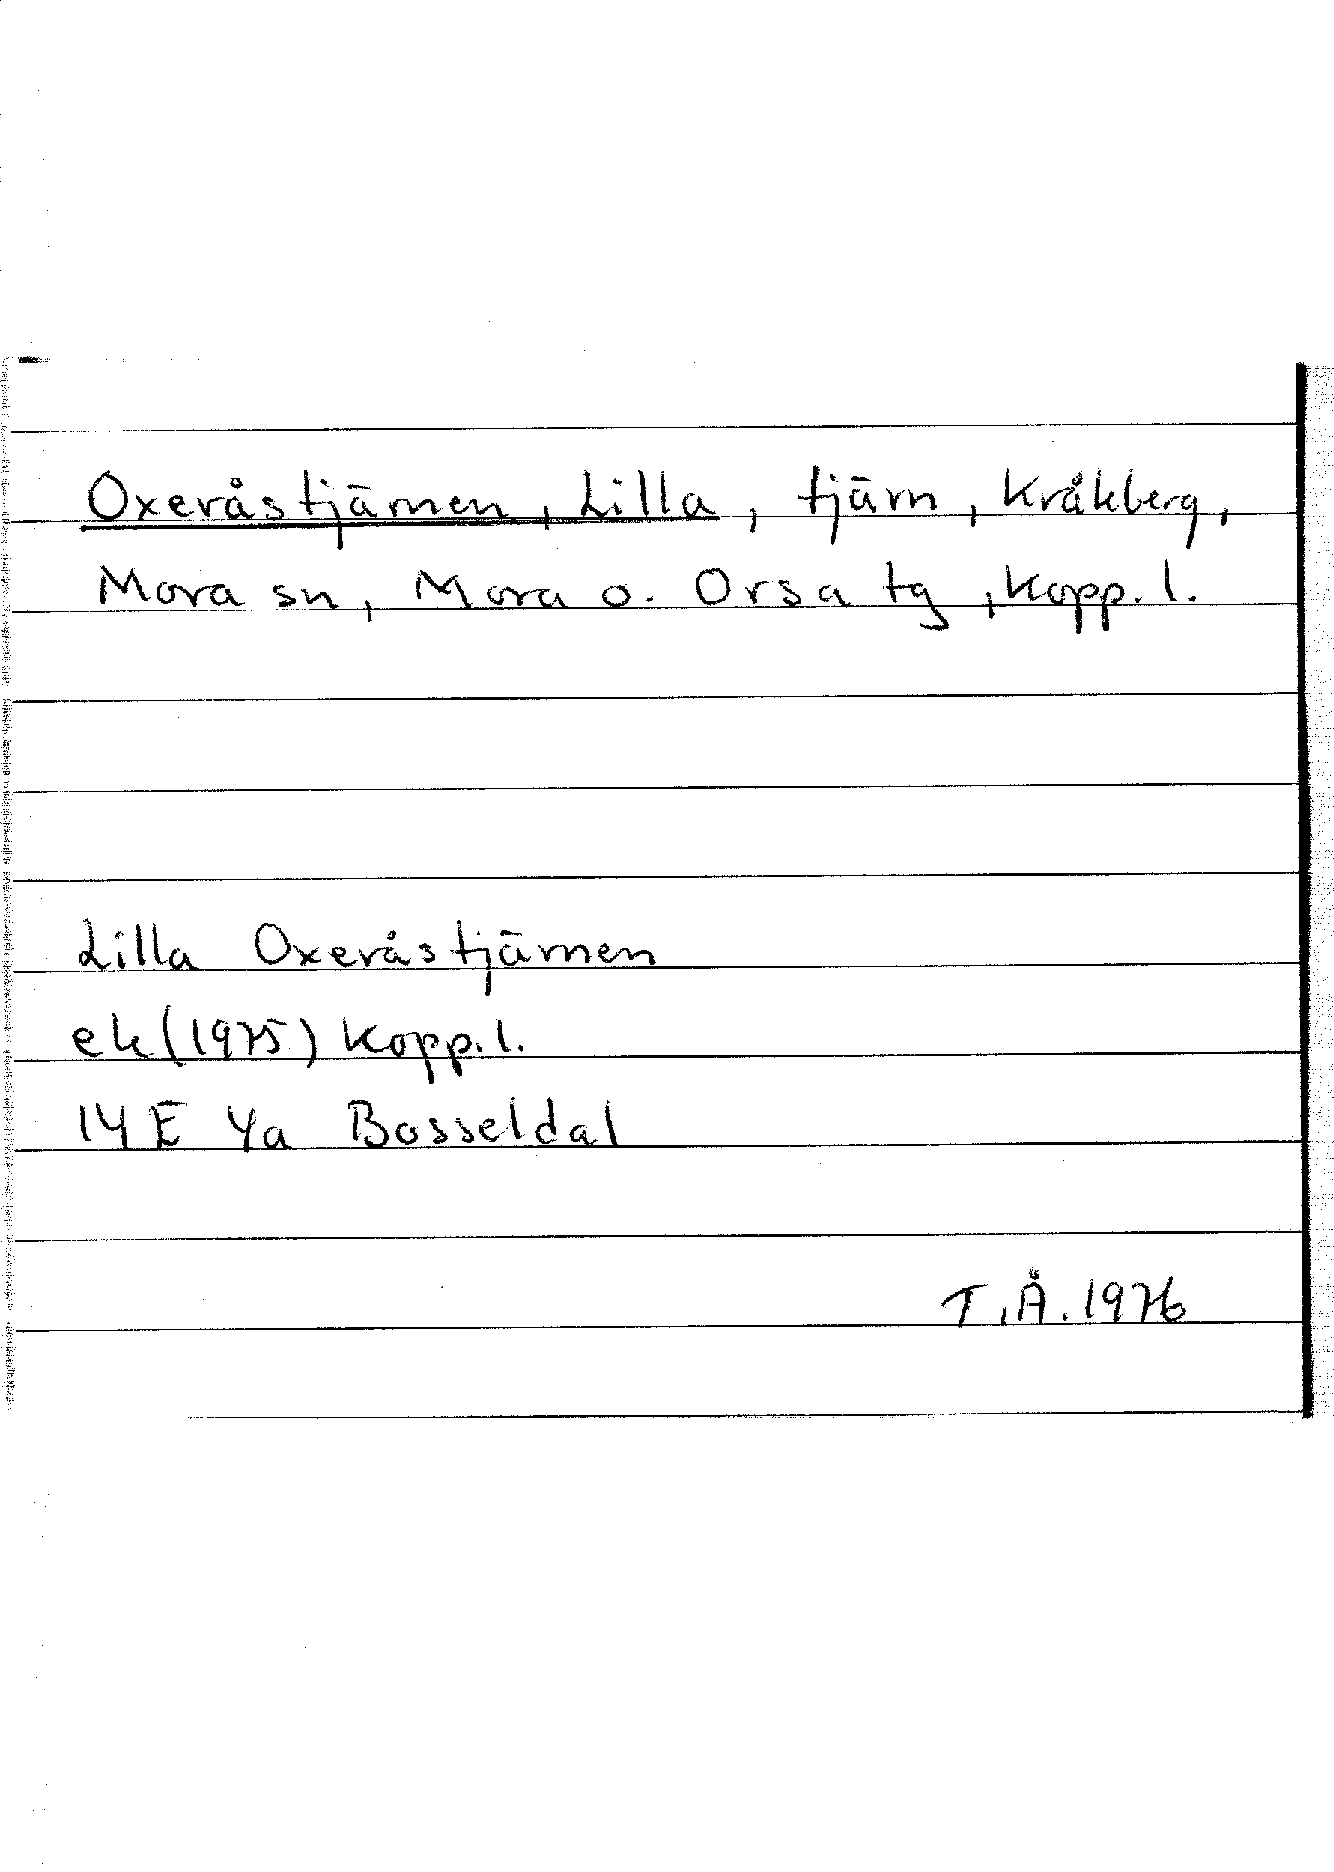 Oxeråstjärnen, Lilla, tjärn, Kråkberg,
Mora sn, Mora o. Orsa tg, Kopp. l.
Lilla Oxeråstjärnen
ek (1975) Kopp. l.
14 E 4a Bosseldal
T.Å. 1976